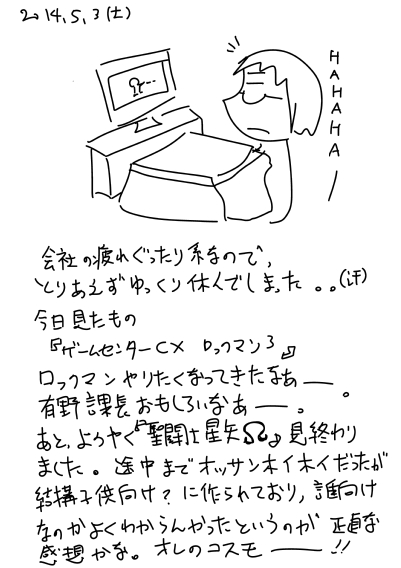 2014.5.3(土)
HAHAHA—
会社の疲れぐったり系なので、
とりあえずゆっくり休んでしまった。。(汗)
今日見たもの
『ゲームセンターCX ロックマン3』
ロックマンやりたくなってきたなあ——。
有野課長おもしろいなあ——。
あと、ようやく『聖闘士星矢Ω』見終わり
ました。途中までオッサンホイホイだったが
結構子供向け?に作られており、誰向け
なのかよくわからんかったというのが正直な
感想かな。オレのコスモ——!!